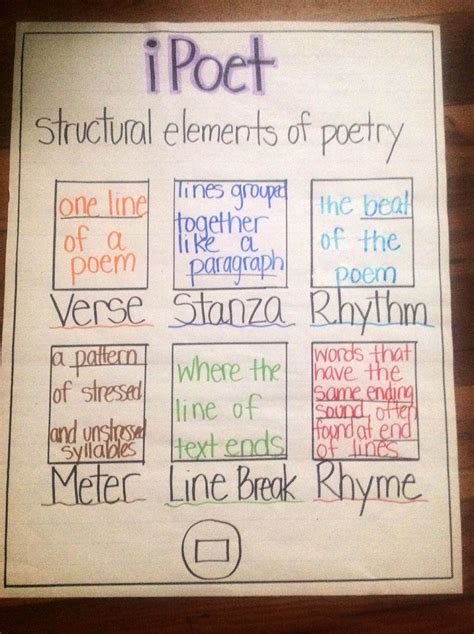 iPoet
Structural elements of poetry
one line
of a
poem
Verse
lines grouped
together
like a
paragraph
Stanza
the beat
of the
poem
Rhythm
a pattern
of stressed
and unstressed
syllables
Meter
where the
line of
text ends
Line Break
words that
have the
same ending
sound, often
found at end
of lines
Rhyme